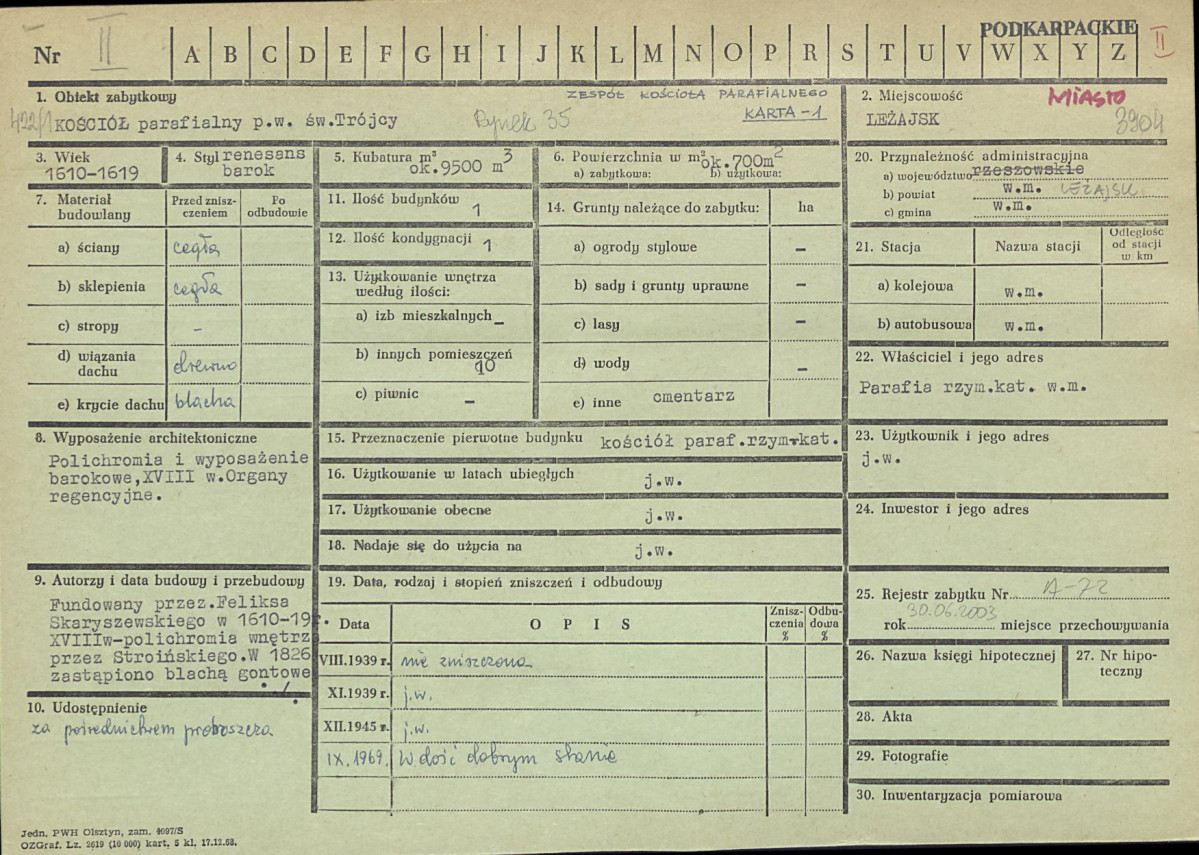 PODKARPACKIE
Nr II A B C D E F G H I J K L M N O P R S T U V W X Y Z II
1. Obiekt zabytkowy
ZESPÓŁ KOŚCIOŁA PARAFIALNEGO
KARTA-1
422/1 KOŚCIÓŁ parafialny p.w. św.Trójcy Rynek 35
2. Miejscowość MIASTO
LEŻAJSK 3904
3. Wiek
1610-1619
4. Styl renesans
barok
5. Kubatura m³
ok.9500 m³
6. Powierzchnia w m² ok.700m²
a) zabytkowa: b) użytkowa:
20. Przynależność administracyjna
a) województwo rzeszowskie
b) powiat w.m. LEŻAJSK
c) gmina w.m.
7. Materiał budowlany
Przed zniszczeniem
Po odbudowie
a) ściany cegła
b) sklepienia cegła
c) stropy -
d) wiązania dachu drewno
e) krycie dachu blacha
11. Ilość budynków 1
12. Ilość kondygnacji 1
13. Użytkowanie wnętrza
według ilości:
a) izb mieszkalnych -
b) innych pomieszczeń
10
c) piwnic -
14. Grunty należące do zabytku: ha
a) ogrody stylowe -
b) sady i grunty uprawne -
c) lasy -
d) wody -
e) inne cmentarz
21. Stacja Nazwa stacji Odległość od stacji w km
a) kolejowa w.m.
b) autobusowa w.m.
22. Właściciel i jego adres
Parafia rzym.kat. w.m.
8. Wyposażenie architektoniczne
Polichromia i wyposażenie
barokowe,XVIII w.Organy
regencyjne.
15. Przeznaczenie pierwotne budynku kościół paraf.rzym-kat.
16. Użytkowanie w latach ubiegłych
j.w.
17. Użytkowanie obecne
j.w.
18. Nadaje się do użycia na j.w.
23. Użytkownik i jego adres
j.w.
24. Inwestor i jego adres
9. Autorzy i data budowy i przebudowy
Fundowany przez.Feliksa
Skaryszewskiego w 1610-19 r.
XVIIIw-polichromia wnętrz
przez Stroińskiego.W 1826
zastąpiono blachą gontowe
./.
10. Udostępnienie
za pośrednictwem proboszcza
19. Data, rodzaj i stopień zniszczeń i odbudowy
Data OPIS Zniszczenia % Odbudowa %
VIII.1939 r. nie zniszczona
XI.1939 r. j.w.
XII.1945 r. j.w.
IX.1969. W dość dobrym stanie
25. Rejestr zabytku Nr A-72
30.06.2003
rok miejsce przechowywania
26. Nazwa księgi hipotecznej
27. Nr hipoteczny
28. Akta
29. Fotografie
30. Inwentaryzacja pomiarowa
Jedn. PWH Olsztyn, zam. 4097/S
OZGraf. Lz. 2619 (10 000) kart. 5 kl. 17.12.68.